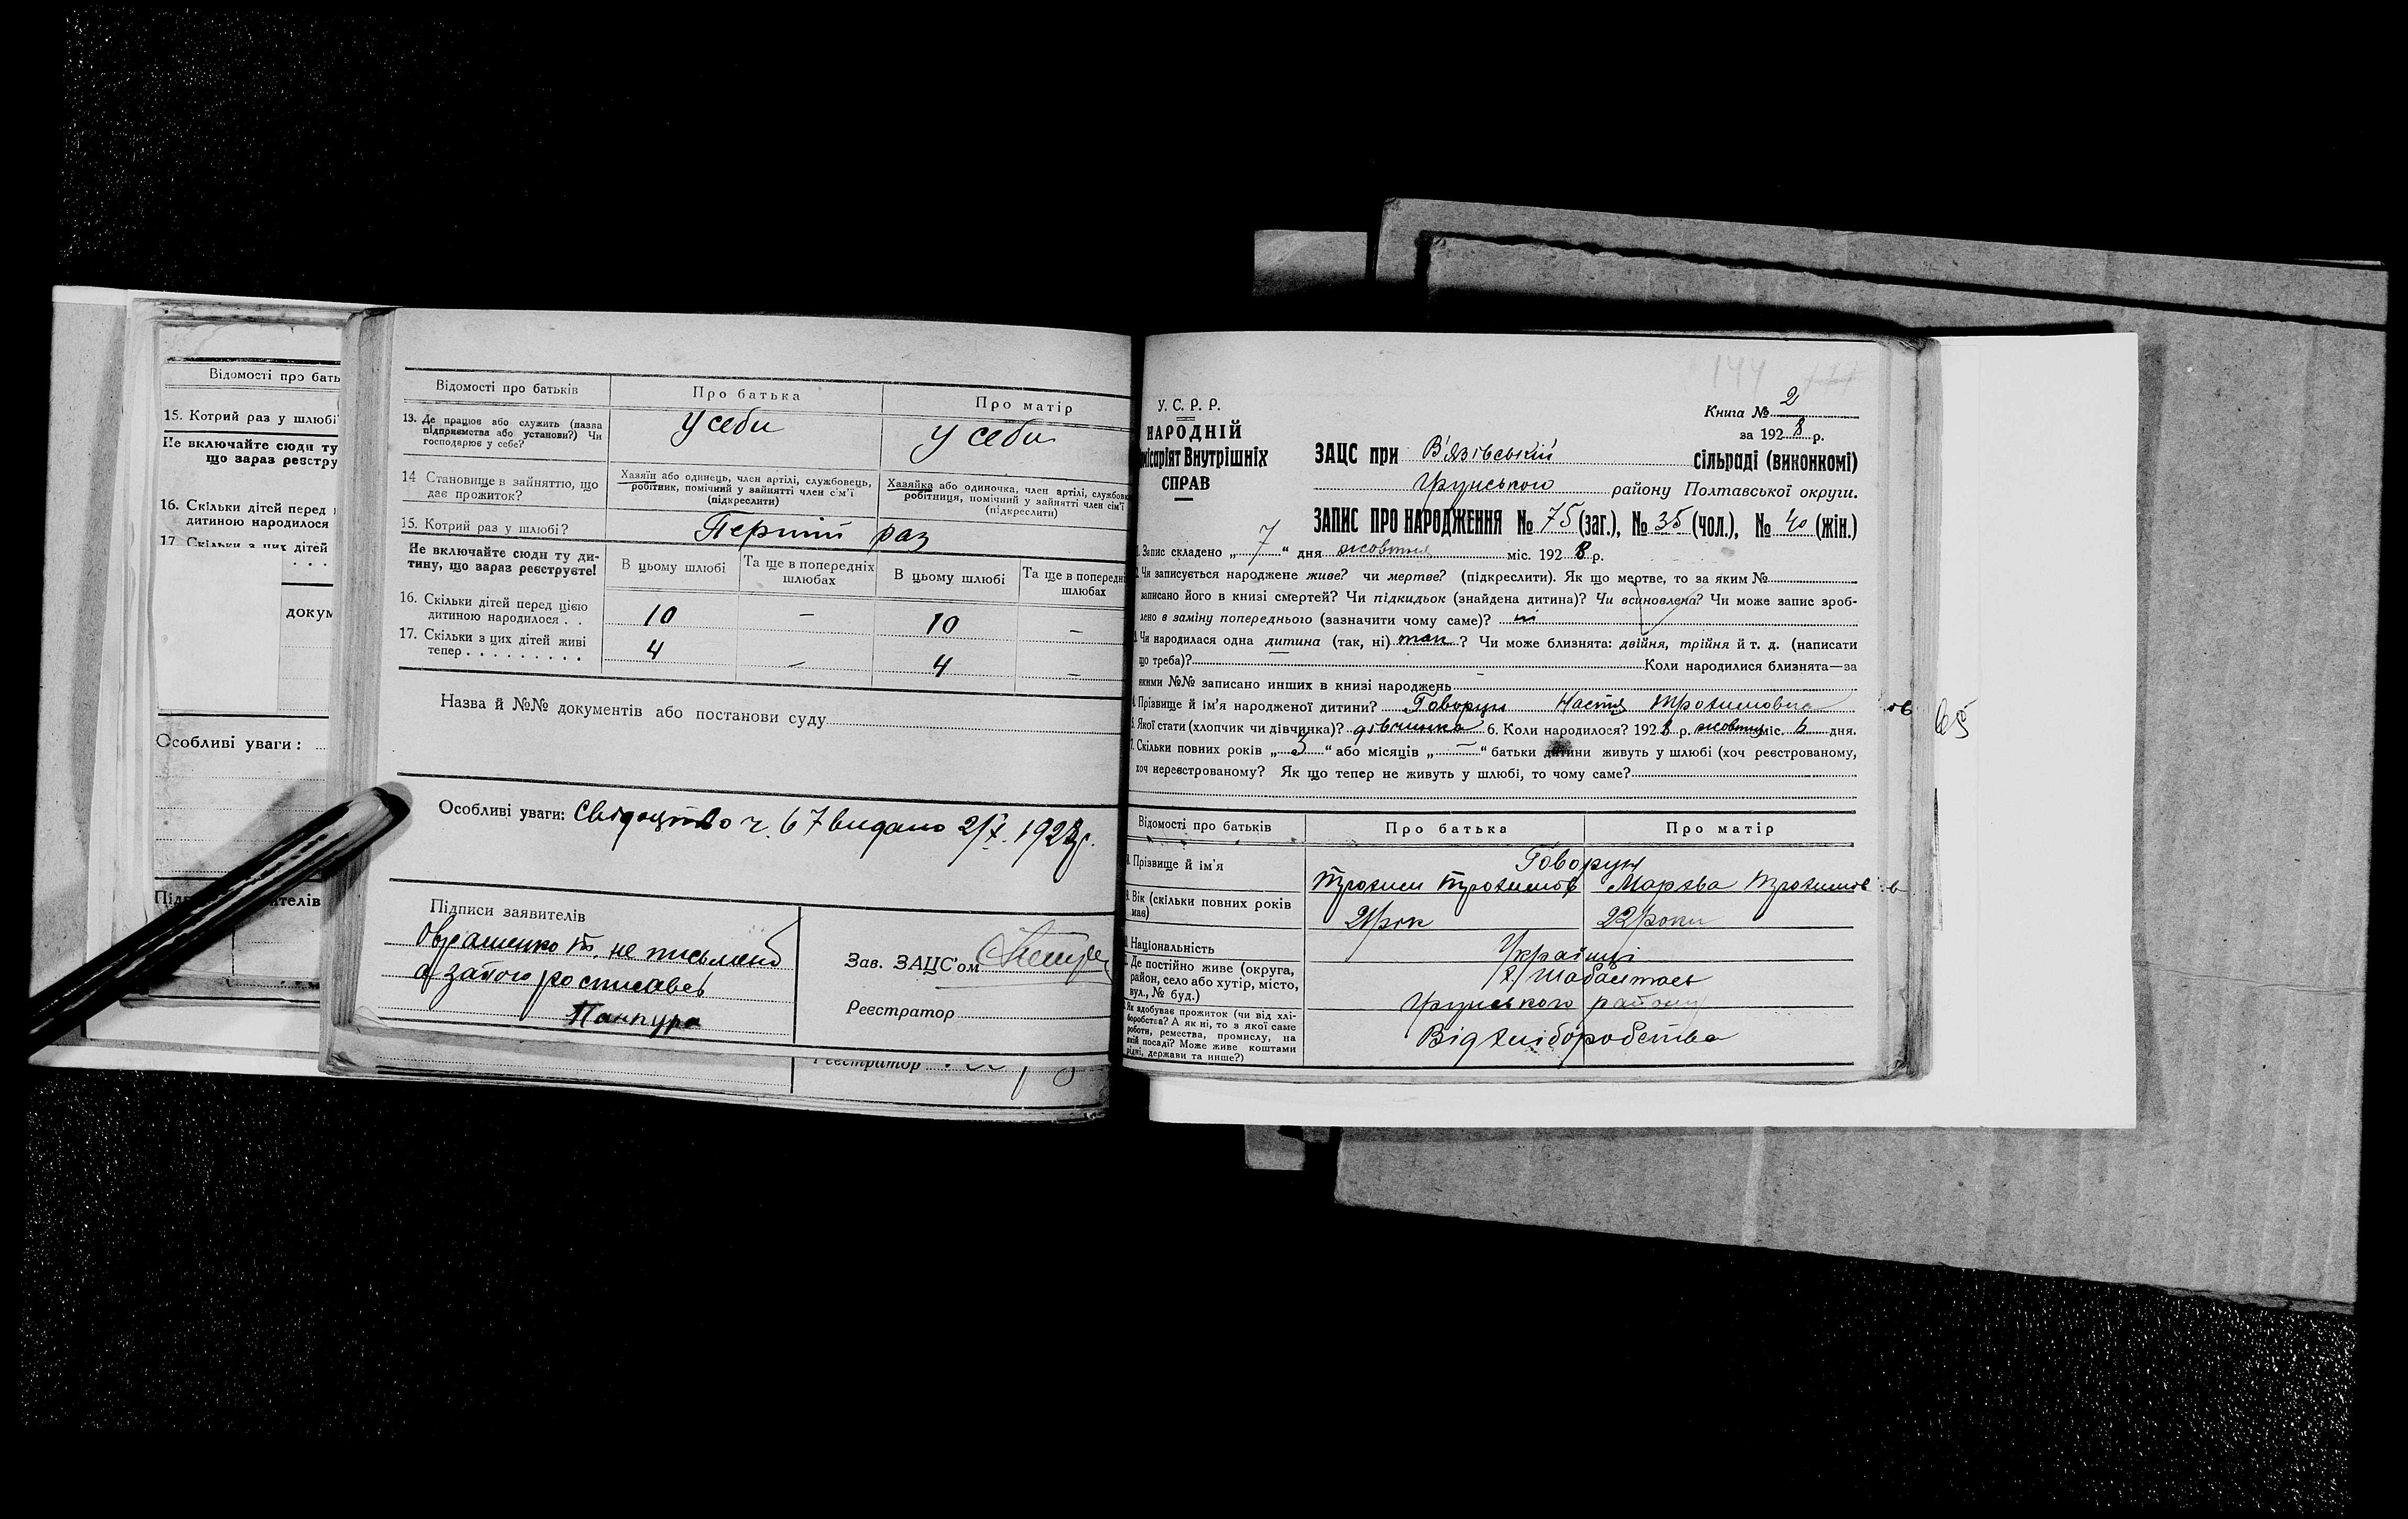 Відомості про бать
15. Котрий раз у шлюбі
Не включайте сюди ту
що зараз реєстру
16. Скільки дітей перед
дитиною народилося
17 Скільки з цих дітей
докум
Особливі уваги:
Відомості про батьків
Про батька
Про матір
13. Де працює або служить (назва
підприємства або установи?) Чи
господарює у себе?
У себи
У себи
14 Становище в зайняттю, що
дає прожиток?
Хазяїн або одинець, член артілі, службовець,
робітник, помічний у зайнятті член сім'ї
(підкреслити)
Хазяйка або одиночка, член артілі, службов
робітниця, помічний у зайнятті член сім'ї
(підкреслити)
15. Котрий раз у шлюбі?
Перший раз
Не включайте сюди ту ди-
тину, що зараз реєструєте!
В цьому шлюбі
Та ще в попередніх
шлюбах
В цьому шлюбі
Та ще в попередні
шлюбах
16. Скільки дітей перед цією
дитиною народилося . .
10 – 10 –
17. Скільки з цих дітей живі
тепер . . . . . . . . .
4 – 4 –
Назва й №№ документів або постанови суду
Особливі уваги: Свідоцтво ч. 67 видано 2/X. 1928 р.
Підписи заявителів
не письмений
а за його росписавсь
Панкура
Зав. ЗАЦС'ом
Реєстратор
Реєстратор
У. С. Р. Р.
НАРОДНІЙ
місаріят Внутрішніх
СПРАВ
144
Книга № 2
за 1928 р.
ЗАЦС при В'язівській сільраді (виконкомі)
Грунського району Полтавської округи.
ЗАПИС ПРО НАРОДЖЕННЯ № 75 (заг.), № 35 (чол.), № 40 (жін.)
1. Запис складено „ 7 “ дня жовтня міс. 1928 р.
2. Чи записується народжене живе? чи мертве? (підкреслити). Як що мертве, то за яким №
записано його в книзі смертей? Чи підкидьок (знайдена дитина)? Чи всиновлена? Чи може запис зроб-
лено в заміну попереднього (зазначити чому саме)? ні
3. Чи народилася одна дитина (так, ні) так ? Чи може близнята: двійня, трійня й т. д. (написати
що треба)? Коли народилися близнята—за
якими №№ записано инших в книзі народжень
4. Прізвище й ім'я народженої дитини? Говорун Настя Трохимовна
65
5. Якої статі (хлопчик чи дівчинка)? дівчинка 6. Коли народилося? 1928 р. жовтня міс. 6 дня.
7. Скільки повних років „ 3 “ або місяців „ – “ батьки дитини живуть у шлюбі (хоч реєстрованому,
хоч нереєстрованому? Як що тепер не живуть у шлюбі, то чому саме?
Відомості про батьків
Про батька
Про матір
8. Прізвище й ім'я
Говорун
Трохим Трохимов
Мархва Трохимов
9. Вік (скільки повних років
має)
21 рік
22 роки
Національність
Українці
Де постійно живе (округа,
район, село або хутір, місто,
вул., № буд.)
Грунського району
Як здобуває прожиток (чи від хлі-
боробства? А як ні, то з якої саме
роботи, ремества, промислу, на
якій посаді? Може живе коштами
рідні, держави та инше?)
Від хліборобства